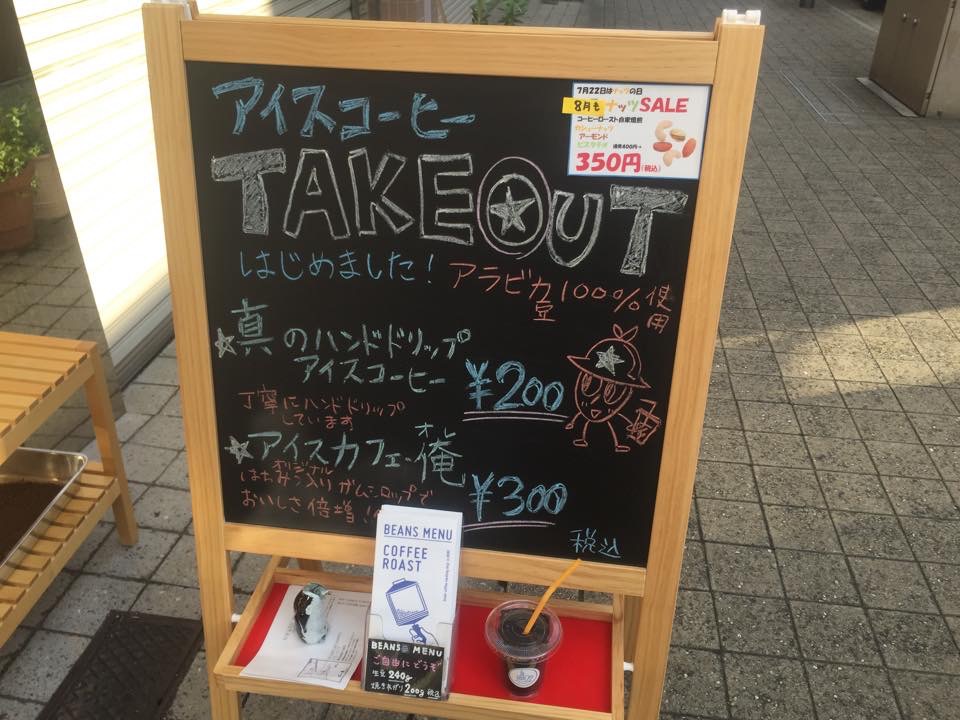 アイスコーヒー
TAKEOUT
はじめました!
アラビカ豆100%使用
☆真のハンドドリップ
アイスコーヒー
¥200
丁寧にハンドドリップ
しています
☆アイスカフェ・俺
オレ
¥300
オリジナル
はちみつ入りガムシロップで
おいしさ倍増!
税込
7月22日はナッツの日
8月もナッツSALE
コーヒーロースト自家焙煎
カシューナッツ
アーモンド
ピスタチオ
通常400円→
350円(税込)
BEANS MENU
COFFEE
ROAST
BEANS MENU
ご自由にどうぞ
生豆 240g
焼き上がり 200g 税込